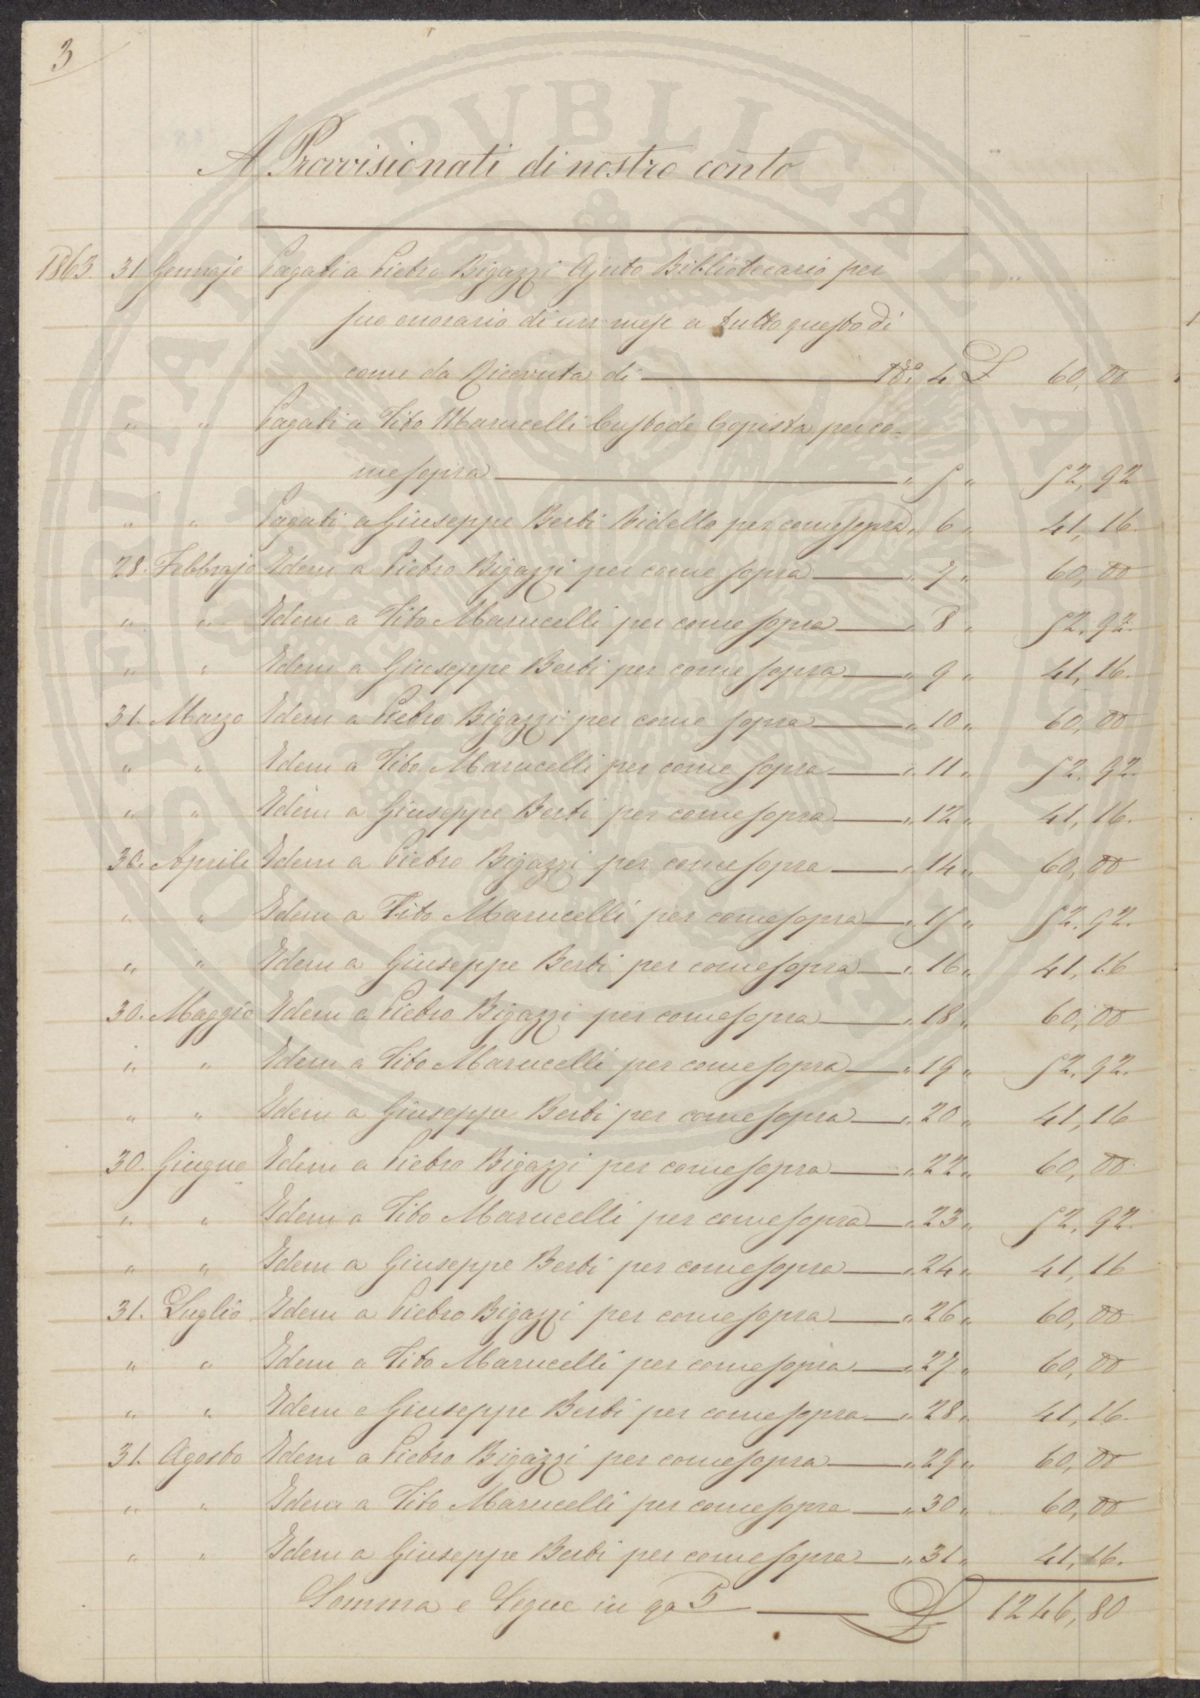 3
A Provvisionati di nostro conto
1863. 31 Gennajo Pagati a Pietro Bigazzi Ajuto Bibliotecario per
suo onorario di un mese a tutto questo dì
come da Ricevuta di N.° 4 £ 60,00
" " Pagati a Tito Marucelli Custode Copista per co-
me sopra " 5 " 52,92
" " Pagati a Giuseppe Berti Bidello per come sopra " 6 " 41,16.
28. Febbrajo Idem a Pietro Bigazzi per come sopra " 7 " 60,00
" " Idem a Tito Marucelli per come sopra " 8 " 52,92.
" " Idem a Giuseppe Berti per come sopra " 9 " 41,16.
31. Marzo Idem a Pietro Bigazzi per come sopra " 10 " 60,00
" " Idem a Tito Marucelli per come sopra " 11 " 52,92.
" " Idem a Giuseppe Berti per come sopra " 12 " 41,16.
30. Aprile Idem a Pietro Bigazzi per come sopra " 14 " 60,00
" " Idem a Tito Marucelli per come sopra " 15 " 52,92.
" " Idem a Giuseppe Berti per come sopra " 16 " 41,16
30. Maggio Idem a Pietro Bigazzi per come sopra " 18 " 60,00
" " Idem a Tito Marucelli per come sopra " 19 " 52,92.
" " Idem a Giuseppe Berti per come sopra " 20 " 41,16
30. Giugno Idem a Pietro Bigazzi per come sopra " 22 " 60,00
" " Idem a Tito Marucelli per come sopra " 23 " 52,92.
" " Idem a Giuseppe Berti per come sopra " 24 " 41,16
31. Luglio Idem a Pietro Bigazzi per come sopra " 26 " 60,00
" " Idem a Tito Marucelli per come sopra " 27 " 60,00
" " Idem a Giuseppe Berti per come sopra " 28 " 41,16.
31. Agosto Idem a Pietro Bigazzi per come sopra " 29 " 60,00
" " Idem a Tito Marucelli per come sopra " 30 " 60,00
" " Idem a Giuseppe Berti per come sopra " 31 " 41,16.
Somma e Segue in qo 5 £ 1246,80